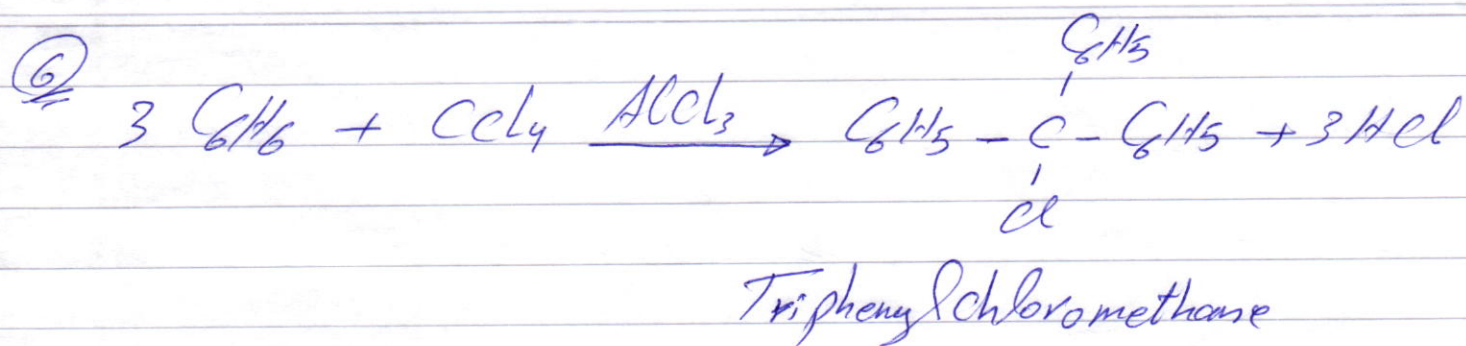 ⑥
C6H5
3 C6H6 + CCl4 AlCl3 → C6H5 - C - C6H5 + 3HCl
Cl
Triphenylchloromethane